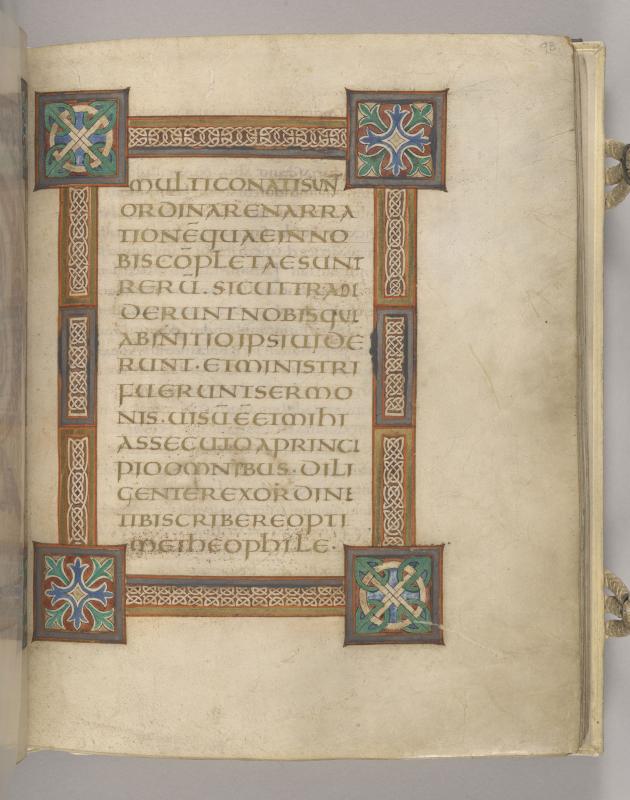 98
MULTI CONATI SUN̄
ORDINARE NARRA
TIONĒ QUAE IN NO
BIS CŌPLETAE SUNT
RERŪ. SICUT TRADI
DERUNT NOBIS QUI
AB INITIO IPSI UIDE
RUNT · ET MINISTRI
FUERUNT SERMO
NIS · UISŪ Ē ET MIHI
ASSECUTO A PRINCI
PIO OMNIBUS · DILI
GENTER EX ORDINE
TIBI SCRIBERE OPTI
ME THEOPHILE ·